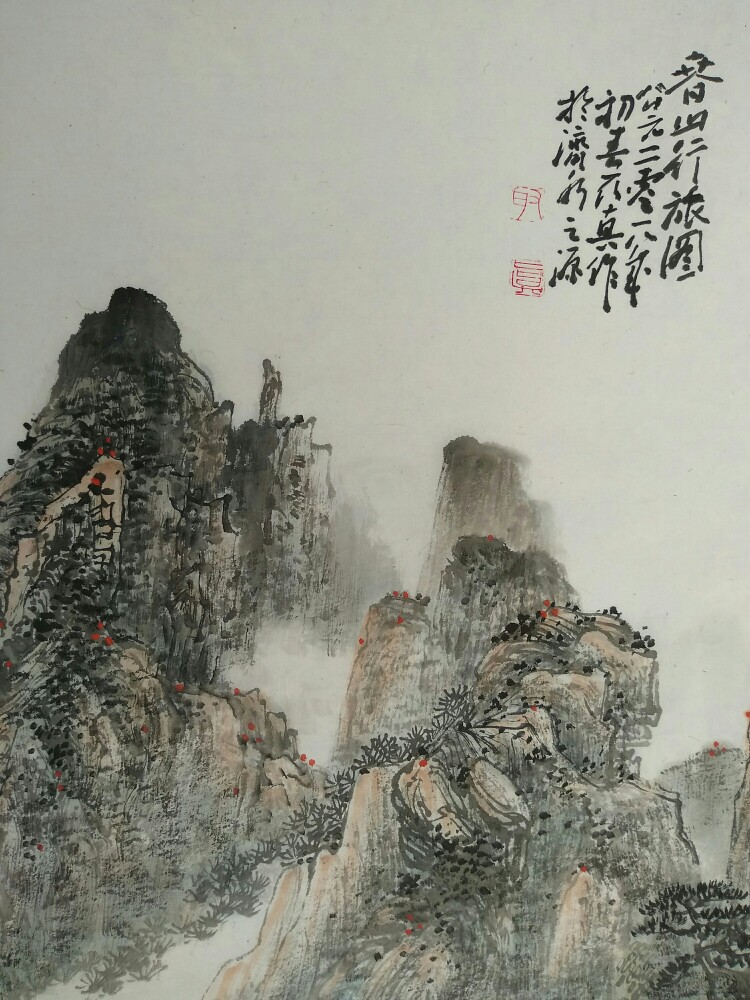 春山行旅图
公元二零一八年
初春真作
於濟水之源
真